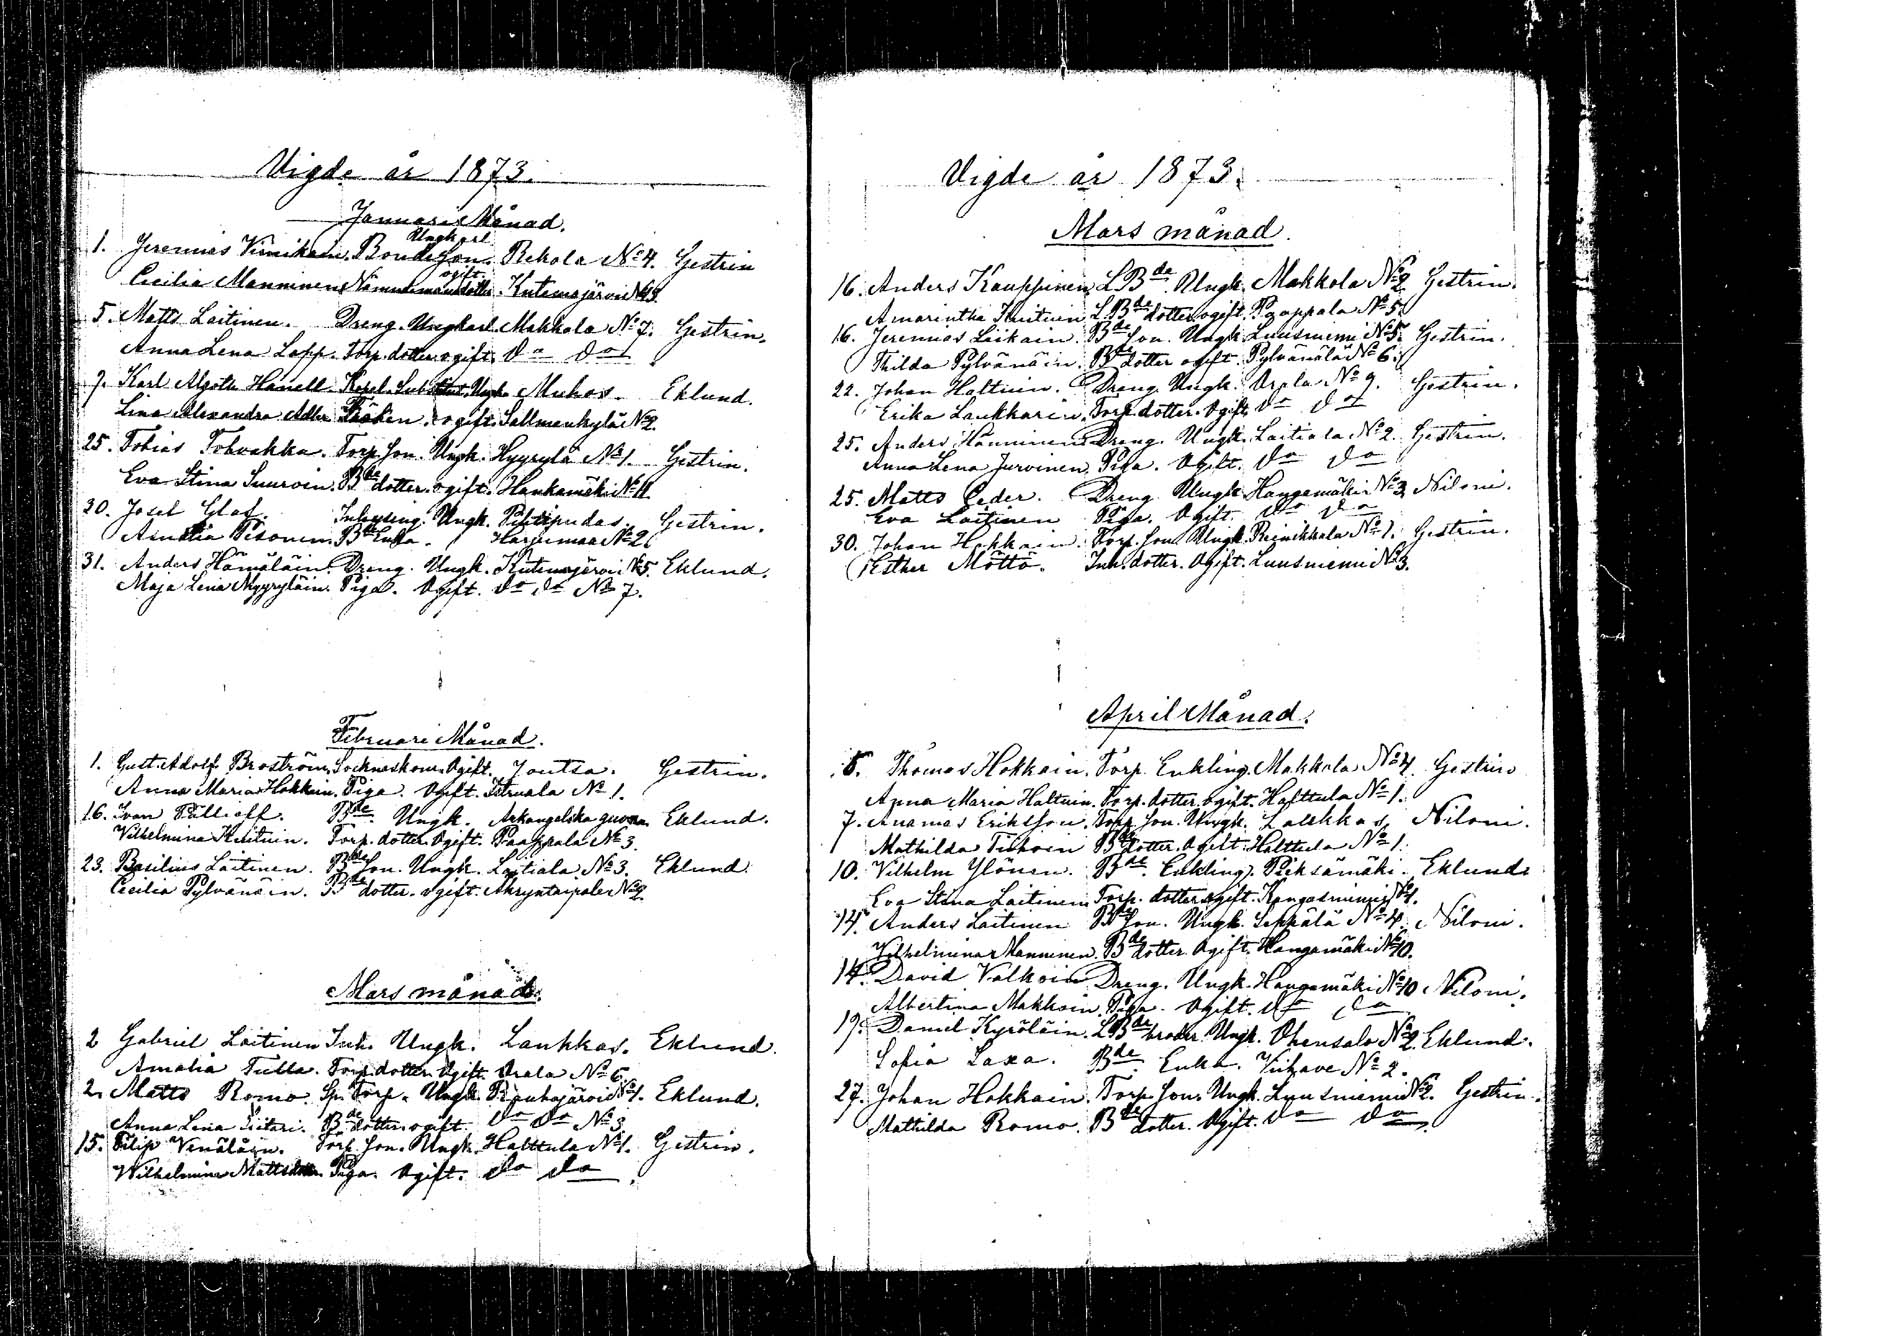 Vigde år 1873.
Januari Månad.
Ungkarl
1. Jeremias Vinikain. Bondeson. Rekola No 4. Gestrin
ogift
Cecilia Manninen Nämndemansdotter. Kutemajärvi No 3.
5. Matts Laitinen. Dreng. Ungkarl. Makkola No 7. Gestrin.
Anna Lena Lapp. Torp. dotter ogift do do
7. Karl Algoth Hanell. Ungk. Muhos. Eklund.
Lina Alexandra Adler Fröken. ogift. Sallmenkylä No 2.
25. Tobias Tohvakka. Torp. Son. Ungk. Hyyrylä No 1. Gestrin.
Eva Stina Suuroin. Bde dotter. ogift. Hankamäki No 11
30. Josef Olof. Inhysing. Ungk. Pihtipudas. Gestrin.
Amalia Pisonen. Bde Enka. Harjumaa No 2.
31. Anders Hämäläin. Dreng. Ungk. Kutemajärvi No 5. Eklund.
Maja Lena Myyryläin. Piga. Ogift. do do No 7.
Februari Månad.
1. Gust. Adolf Broström. Sockneskom. Ogift. Joutsa. Gestrin.
Anna Maria Hokkain. Piga. Ogift. Istruala No 1.
16. Ivan Bde. Ungk. Arkangelska guvern. Eklund.
Vilhelmina Kuituin. Torp. dotter. Ogift. Paappala No 3.
23. Basilius Laitinen. Bde Son. Ungk. Laitiala No 3. Eklund.
Cecilia Pylvänäin. Bde dotter. Ogift. No 2.
Mars månad.
2 Gabriel Laitinen Inh. Ungk. Laukkas. Eklund.
Amalia Tulla. Torp. dotter. Ogift. Orala No 6.
2. Matts Romo. Sp. Torp. Ungk. Rauhajärvi No 1. Eklund.
Anna Lena Siiteri. Bde dotter. ogift. do do No 3
15. Filip Venäläin. Torp. Son. Ungk. Halttula No 1. Gestrin.
Wilhelmina Mattsdotter. Piga. Ogift. do do.
Vigde år 1873.
Mars månad.
16. Anders Kauppinen LBde. Ungk. Makkola No 2 Gestrin.
Amarintha Kuituin LBde dotter. ogift. Paappala No 5.
16. Jeremias Liikain. Bde Son. Ungk. Luusniemi No 5. Gestrin.
Thilda Pylvänäin. Bde dotter ogift. Pylvänälä No 6.
22. Johan Haltuin. Dreng. Ungk. Orala No 9. Gestrin.
Erika Laukkarin. Torp. dotter. Ogift. do do
25. Anders Hänninen. Dreng. Ungk. Laitiala No 2. Gestrin.
Anna Lena Jurvinen. Piga. Ogift. do do
25. Matts Ceder. Dreng. Ungk. Hangamäki No 3. Niloni.
Eva Laitinen Piga. Ogift. do do
30. Johan Hokkain. Torp. Son. Ungk. Reinikkala No 1. Gestrin.
Esther Möttö. Inh. dotter. Ogift. Luusniemi No 3.
April Månad.
5. Thomas Hokkain. Torp. Enkling. Makkola No 4. Gestrin
Anna Maria Haltuin. Torp. dotter. ogift. Halttula No 1.
7. Ananias Eriksson. Torp. Son. Ungk. Laukkas. Niloni.
Mathilda Bde dotter. Ogift. Halttula No 1.
10. Vilhelm Ylönen. Bde. Enkling. Pieksämäki. Eklund.
Eva Stina Laitinen Torp. dotter. ogift. Kangasniemi No 1.
14. Anders Laitinen Bde Son. Ungk. Seppälä No 4. Niloni.
Vilhelmina Manninen. Bde dotter. Ogift. Hangamäki No 10.
14. David Valkoin Dreng. Ungk. Hangamäki No 10 Niloni.
Albertina Makkoin. Piga. Ogift. do do
19. Daniel Kyröläin. LBde broder. Ungk. Ohensalo No 2. Eklund.
Sofia Laxa. Bde. Enka. No 2.
27. Johan Hokkain. Torp. Son. Ungk. Luusniemi No 2. Gestrin.
Mathilda Romo. Bde dotter. Ogift. do do.